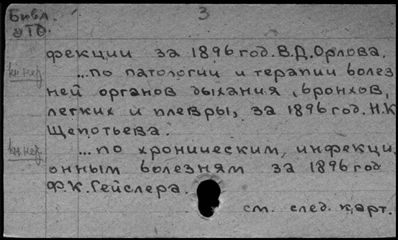 Библ.
УТО
3
фекции за 1896 год. В.Д.Орлова.
...по патологии и терапии волез
ней органов дыхания, бронхов,
легких и плевры, за 1896 год. Н.К
Щепотьева.
...по хроническим, инфекци
онным волезням за 1896 год
Ф.К.Гейслера.
см. след. карт.